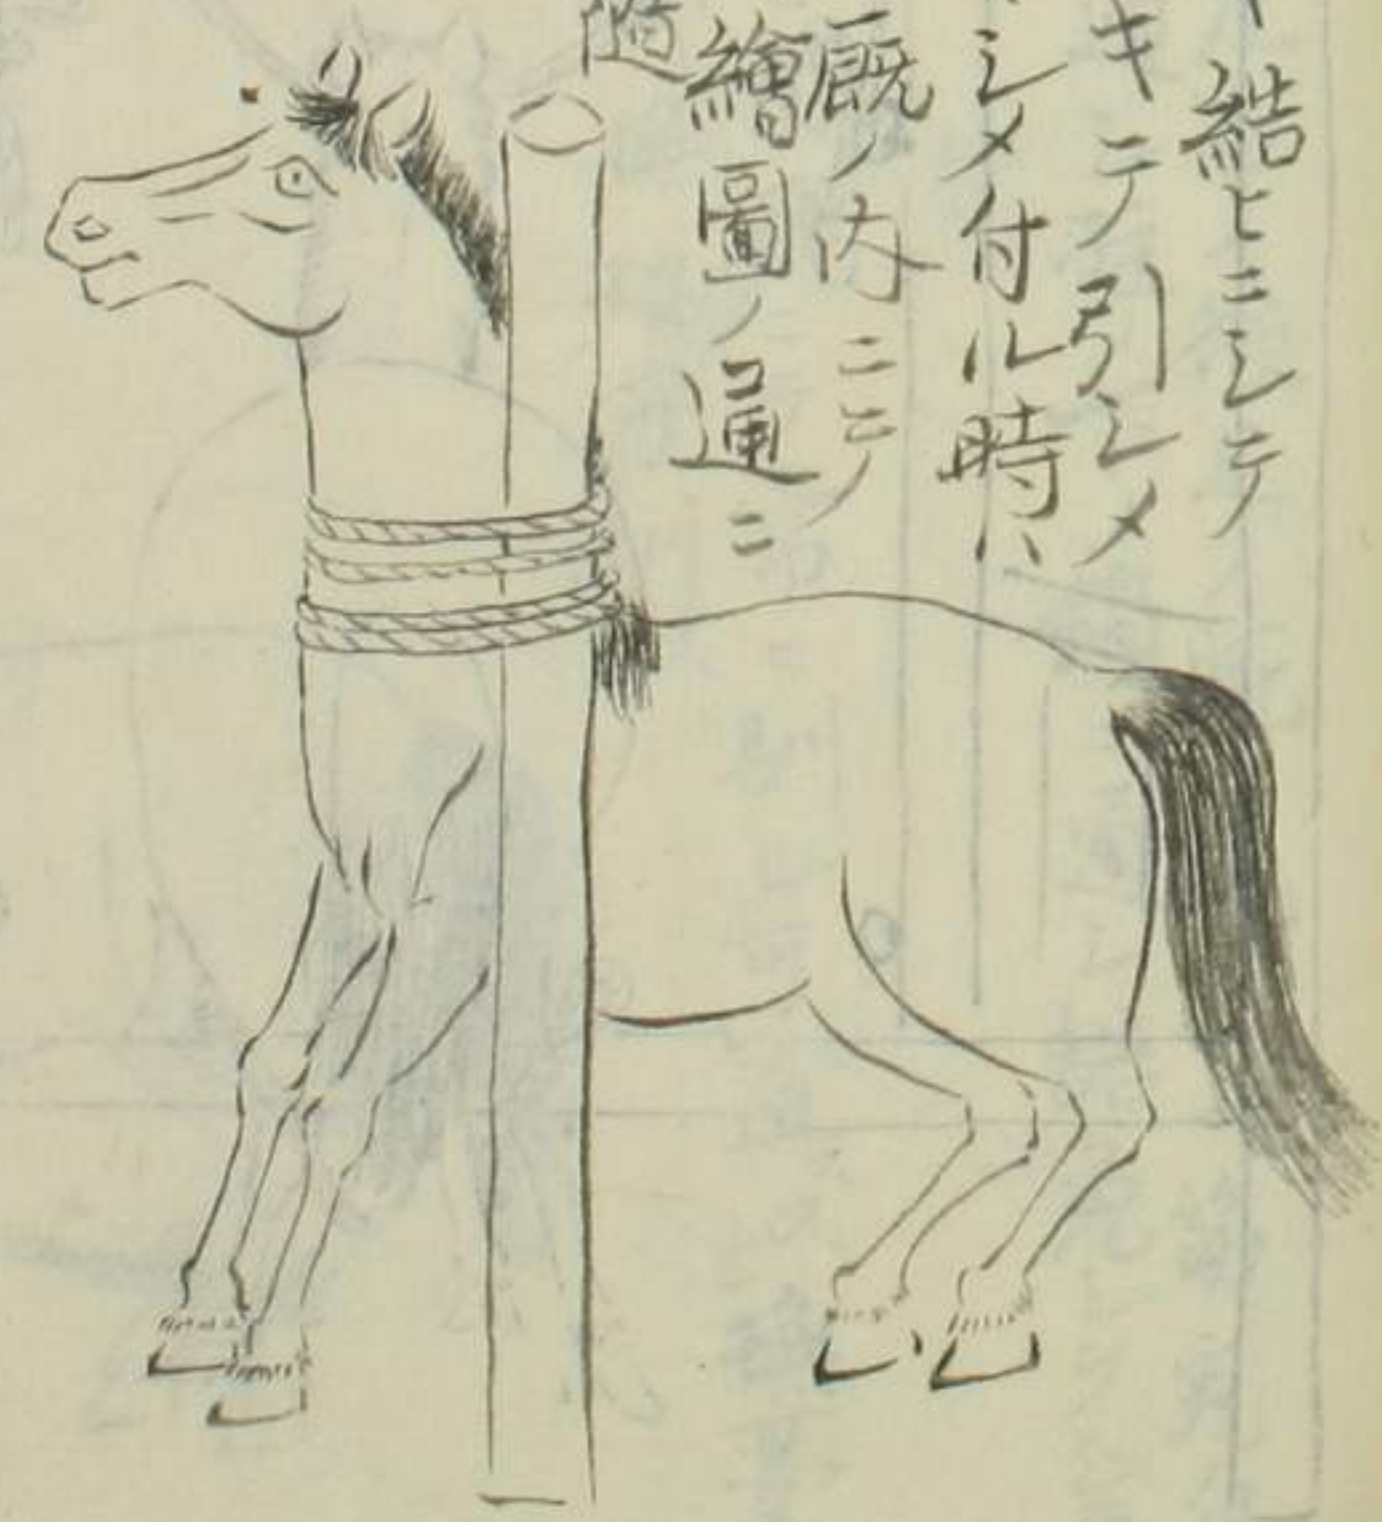 結ヒニシテ
キテ引シメ
シメ付ル時ハ
厩ノ内ニヒノ
繪圖ノ通ニ